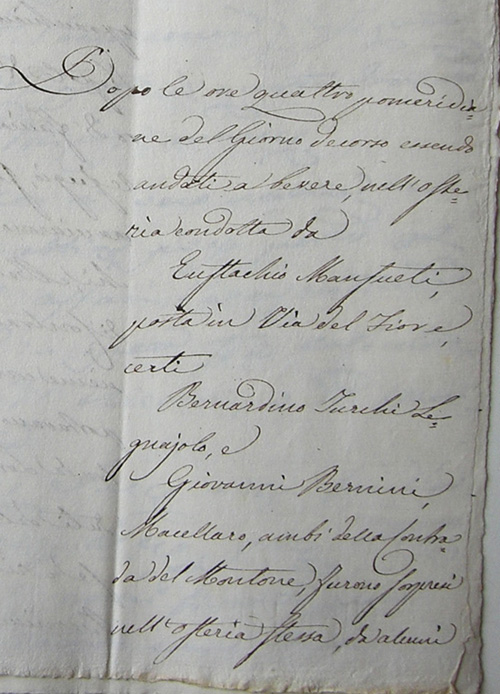 Dopo le ore quattro pomeridia=
ne del Giorno decorso essendo
andati a bevere, nell'oste=
ria condotta da
Eustachio Mansueti,
posta in Via del Fiore,
certi
Bernardino Turchi Le=
gnajolo, e
Giovanni Bernini,
Macellaro, ambi della Contra=
da del Montone, furono sorpresi
nell'osteria stessa, da alcuni